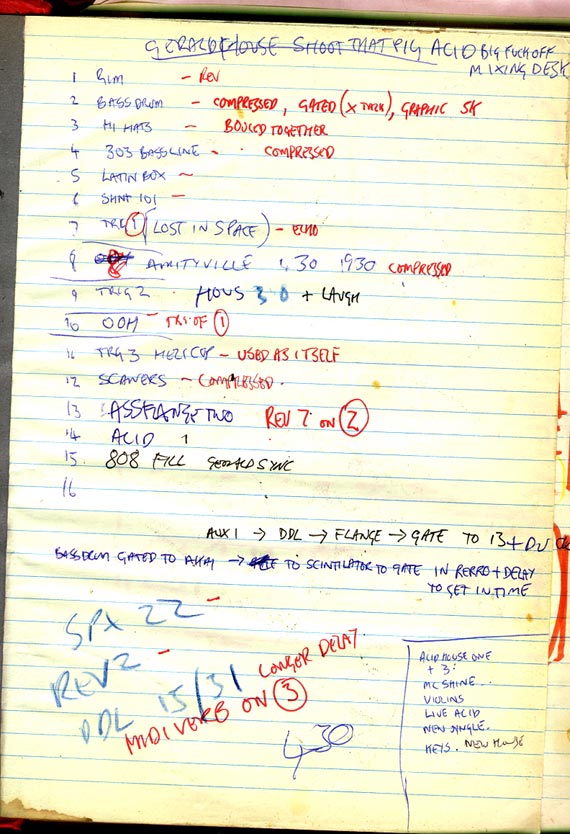 GERALD HOUSE SHOOT THAT PIG ACID BIG FUCK OFF
MIXING DESK
1 RIM - REV
2 BASS DRUM - COMPRESSED, GATED (X TALK), GRAPHIC 5K
3 HI HATS - BOUCED TOGETHER
4 303 BASSLINE - COMPRESSED
5 LATIN BOX -
6 SHNT 101 -
7 TRG 1 (LOST IN SPACE) - ECHO
8 AMITYVILLE 1.30 1930 COMPRESSED
9 TRIG 2 HOUS 30 + LAUGH
10 OOH - TRIG OF 1
11 TRG 3 HELICOP - USED AS ITSELF
12 SCANERS - COMPRESSED.
13 ASSFLANGE TWO REV 2 ON 2
14 ACID 1
15. 808 FILL GERALD SYNC
16
AUX 1 → DDL → FLANGE → GATE TO 13 +
BASSDRUM GATED TO AKAI → TO SCINTILATOR TO GATE IN + DELAY
TO SET IN TIME
SPX 22 -
REV 2 -
DDL 15/31 LONGER DELAY.
MIDIVERB ON 3
430
ACID HOUSE ONE
+ 3:
MC SHINE..
VIOLINS
LIVE ACID
NEW SINGLE.
KEYS. NEW HOUSE